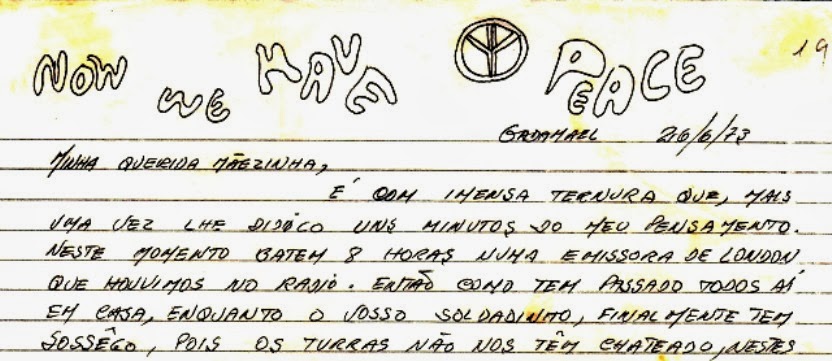 NOW WE HAVE PEACE
19
GADAMAEL 26/6/73
MINHA QUERIDA MÃEZINHA,
É COM IMENSA TERNURA QUE, MAIS
UMA VEZ LHE DIDÍCO UNS MINUTOS DO MEU PENSAMENTO.
NESTE MOMENTO BATEM 8 HORAS NUMA EMISSORA DE LONDON
QUE HOUVIMOS NO RADIO. ENTÃO COMO TEM PASSADO TODOS AÍ
EM CASA, ENQUANTO O VOSSO SOLDADINHO, FINALMENTE TEM
SOSSÊGO, POIS OS TURRAS NÃO NOS TÊM CHATEADO, NESTES